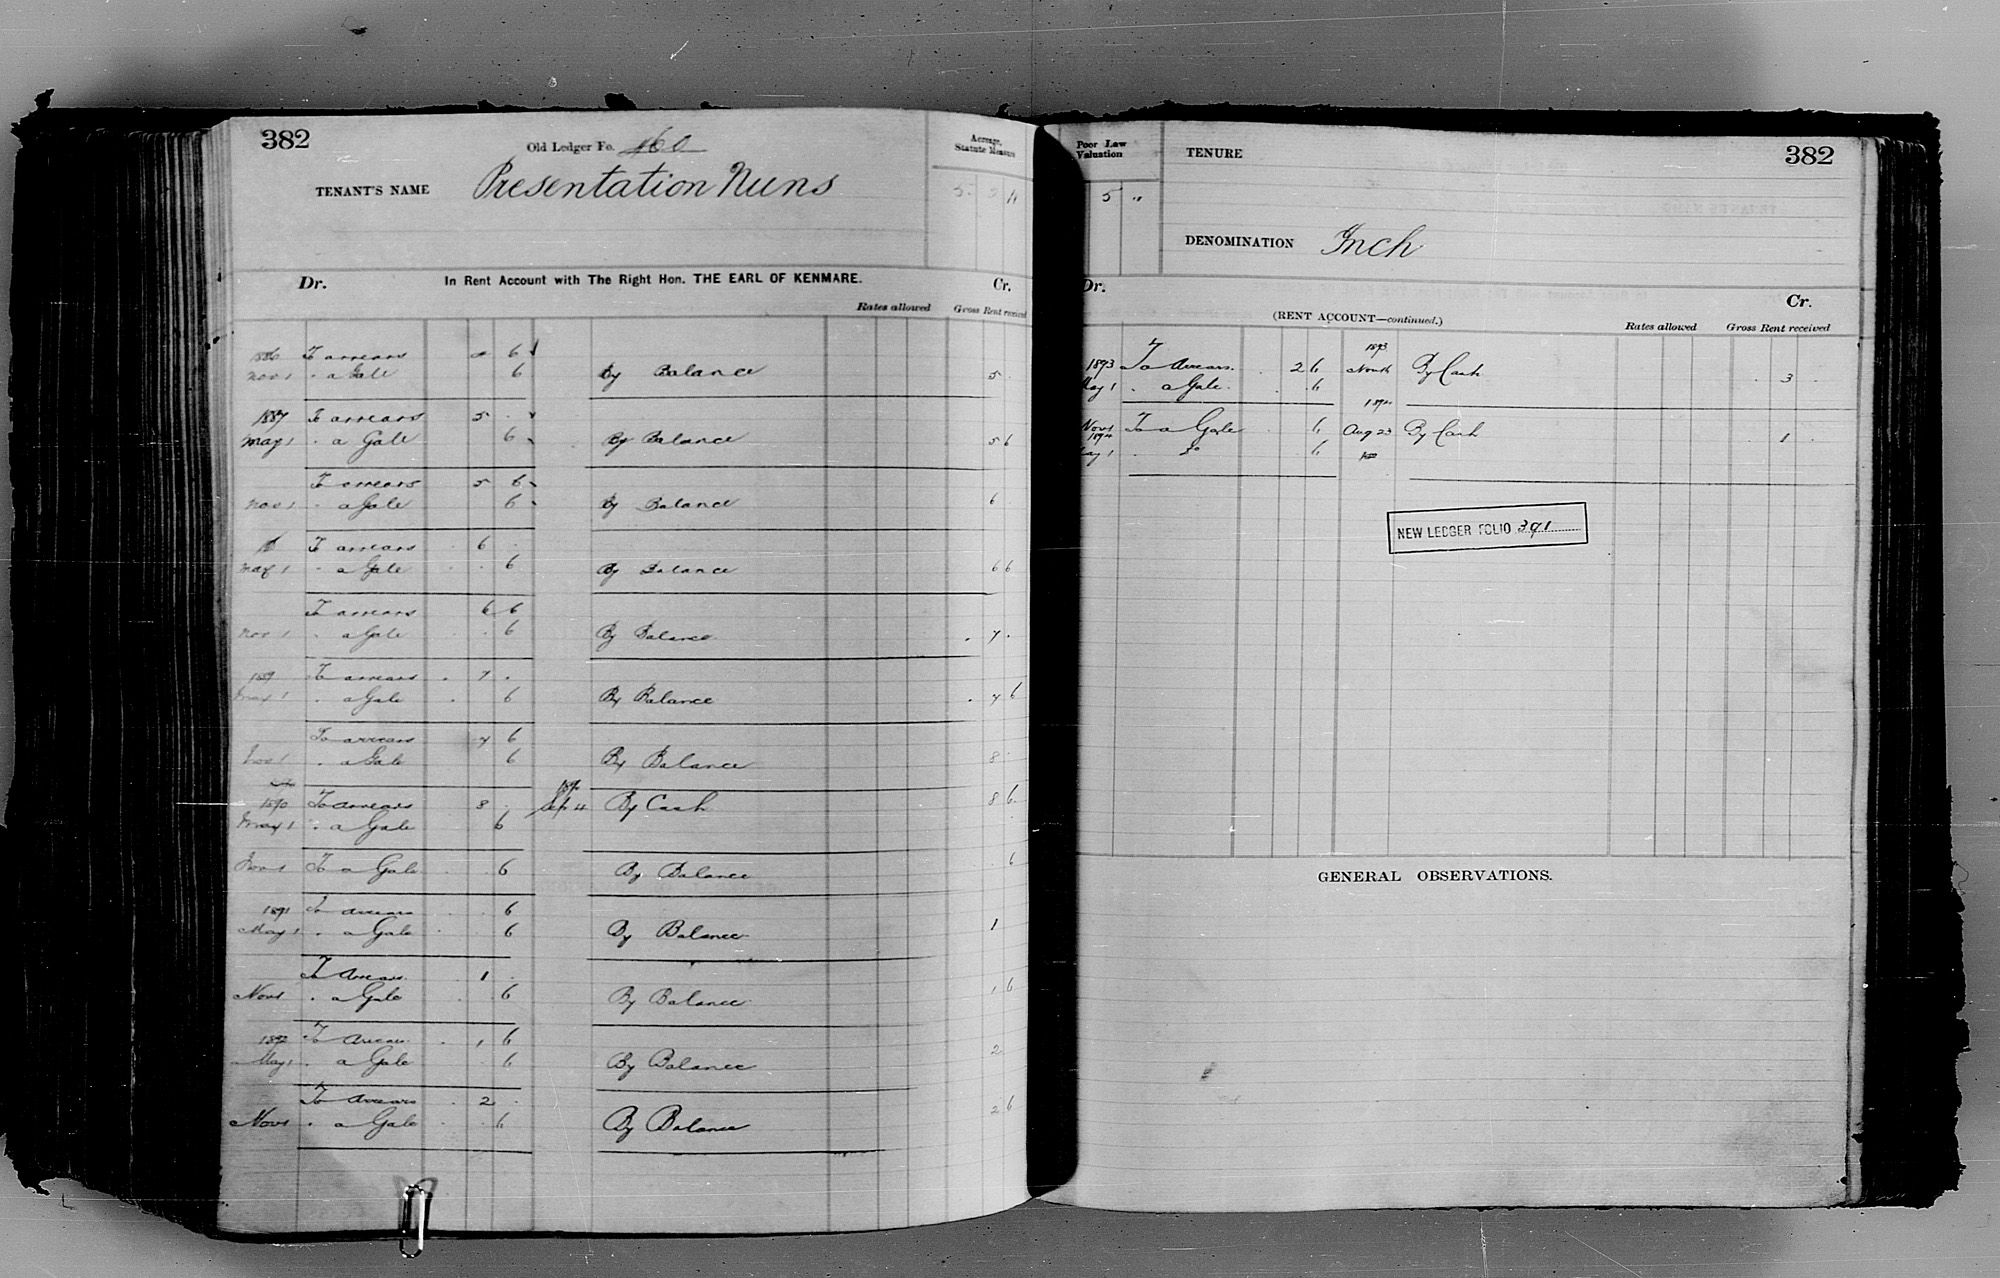 382
Old Ledger Fo. 160
Acreage, Statute Measure
TENANT'S NAME Presentation Nuns
Dr. In Rent Account with The Right Hon. THE EARL OF KENMARE. Cr.
Rates allowed Gross Rent received
1886 To arrears 6
Nov 1 " a Gale 6 By Balance 5 .
1887 To arrears 5 .
May 1 " a Gale 6 By Balance 5 6
To arrears 5 6
Nov 1 " a Gale 6 By Balance 6 .
To arrears 6 .
May 1 " a Gale 6 By Balance 6 6
To arrears 6 6
Nov 1 " a Gale 6 By Balance 7 .
1889 To arrears 7 .
May 1 " a Gale 6 By Balance 7 6
To arrears 7 6
Nov 1 " a Gale 6 By Balance 8 .
1890 To arrears 8 . 1890 Sep 4 By Cash 8 6
May 1 " a Gale 6
Nov 1 To a Gale 6 By Balance 6
1891 To arrears 6
May 1 " a Gale 6 By Balance 1
To Arrears 1 .
Nov 1 " a Gale 6 By Balance 1 6
1892 To Arrears 1 6
May 1 " a Gale 6 By Balance 2
To Arrears 2 .
Nov 1 " a Gale 6 By Balance 2 6
Poor Law Valuation
TENURE
382
5 "
DENOMINATION Inch
Dr. Cr.
(RENT ACCOUNT—continued.)
Rates allowed Gross Rent received
1893
1893 To Arrears 2 6 By Cash 3 .
May 1 " a Gale 6
Nov 1 To a Gale 6 Aug 23 By Cash 1 .
1894
May 1 " Do 6
NEW LEDGER FOLIO 391
GENERAL OBSERVATIONS.